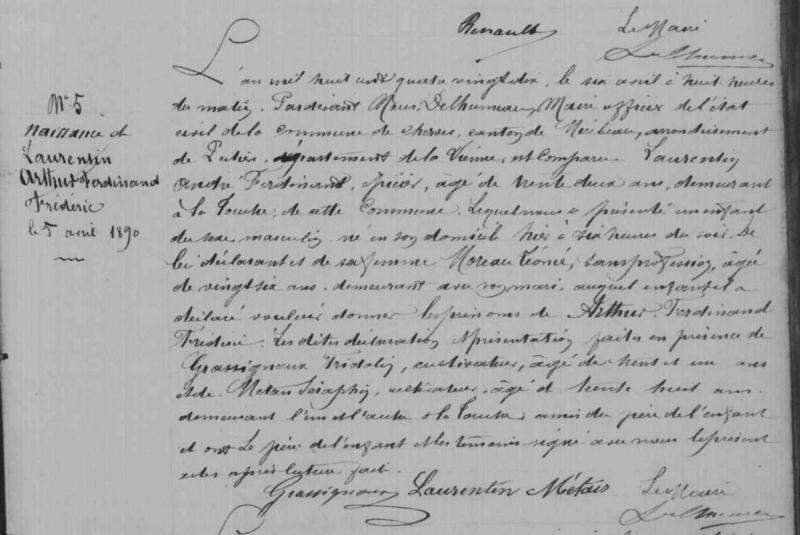 Renault
Le Maire
Delhumeau
N° 5
naissance de
Laurentin
Arthur Ferdinand
Frédéric
le 5 avril 1890
L'an mil huit cent quatre vingt dix, le six avril à huit heures
du matin. Pardevant Nous, Delhumeau, Maire officier de l'état
civil de la commune de Cherves, canton de Mirebeau, arrondissement
de Poitiers, département de la Vienne, est comparu Laurentin
André Ferdinand, épicier, âgé de trente deux ans, demeurant
à la Touche, de cette Commune. Lequel nous a présenté un enfant
du sexe masculin né en son domicile hier à six heures du soir. De
lui déclarant et de sa femme Moreau Léonie, sans profession, âgée
de vingt six ans. demeurant avec son mari, auquel enfant il a
déclaré vouloir donner les prénoms de Arthur. Ferdinand
Frédéric. Les dites déclaration & présentation faites en présence de
Grassignoux Fridolin, cultivateur, âgé de trente et un ans
et de. Métais Séraphin, cultivateur, âgé de trente huit ans.
demeurant l'un et l'autre à la Touche, amis du père de l'enfant
et ont Le père de l'enfant et les témoins signé avec nous le présent
acte après lecture fait.
Grassignoux Laurentin Métais
Le Maire
Delhumeau